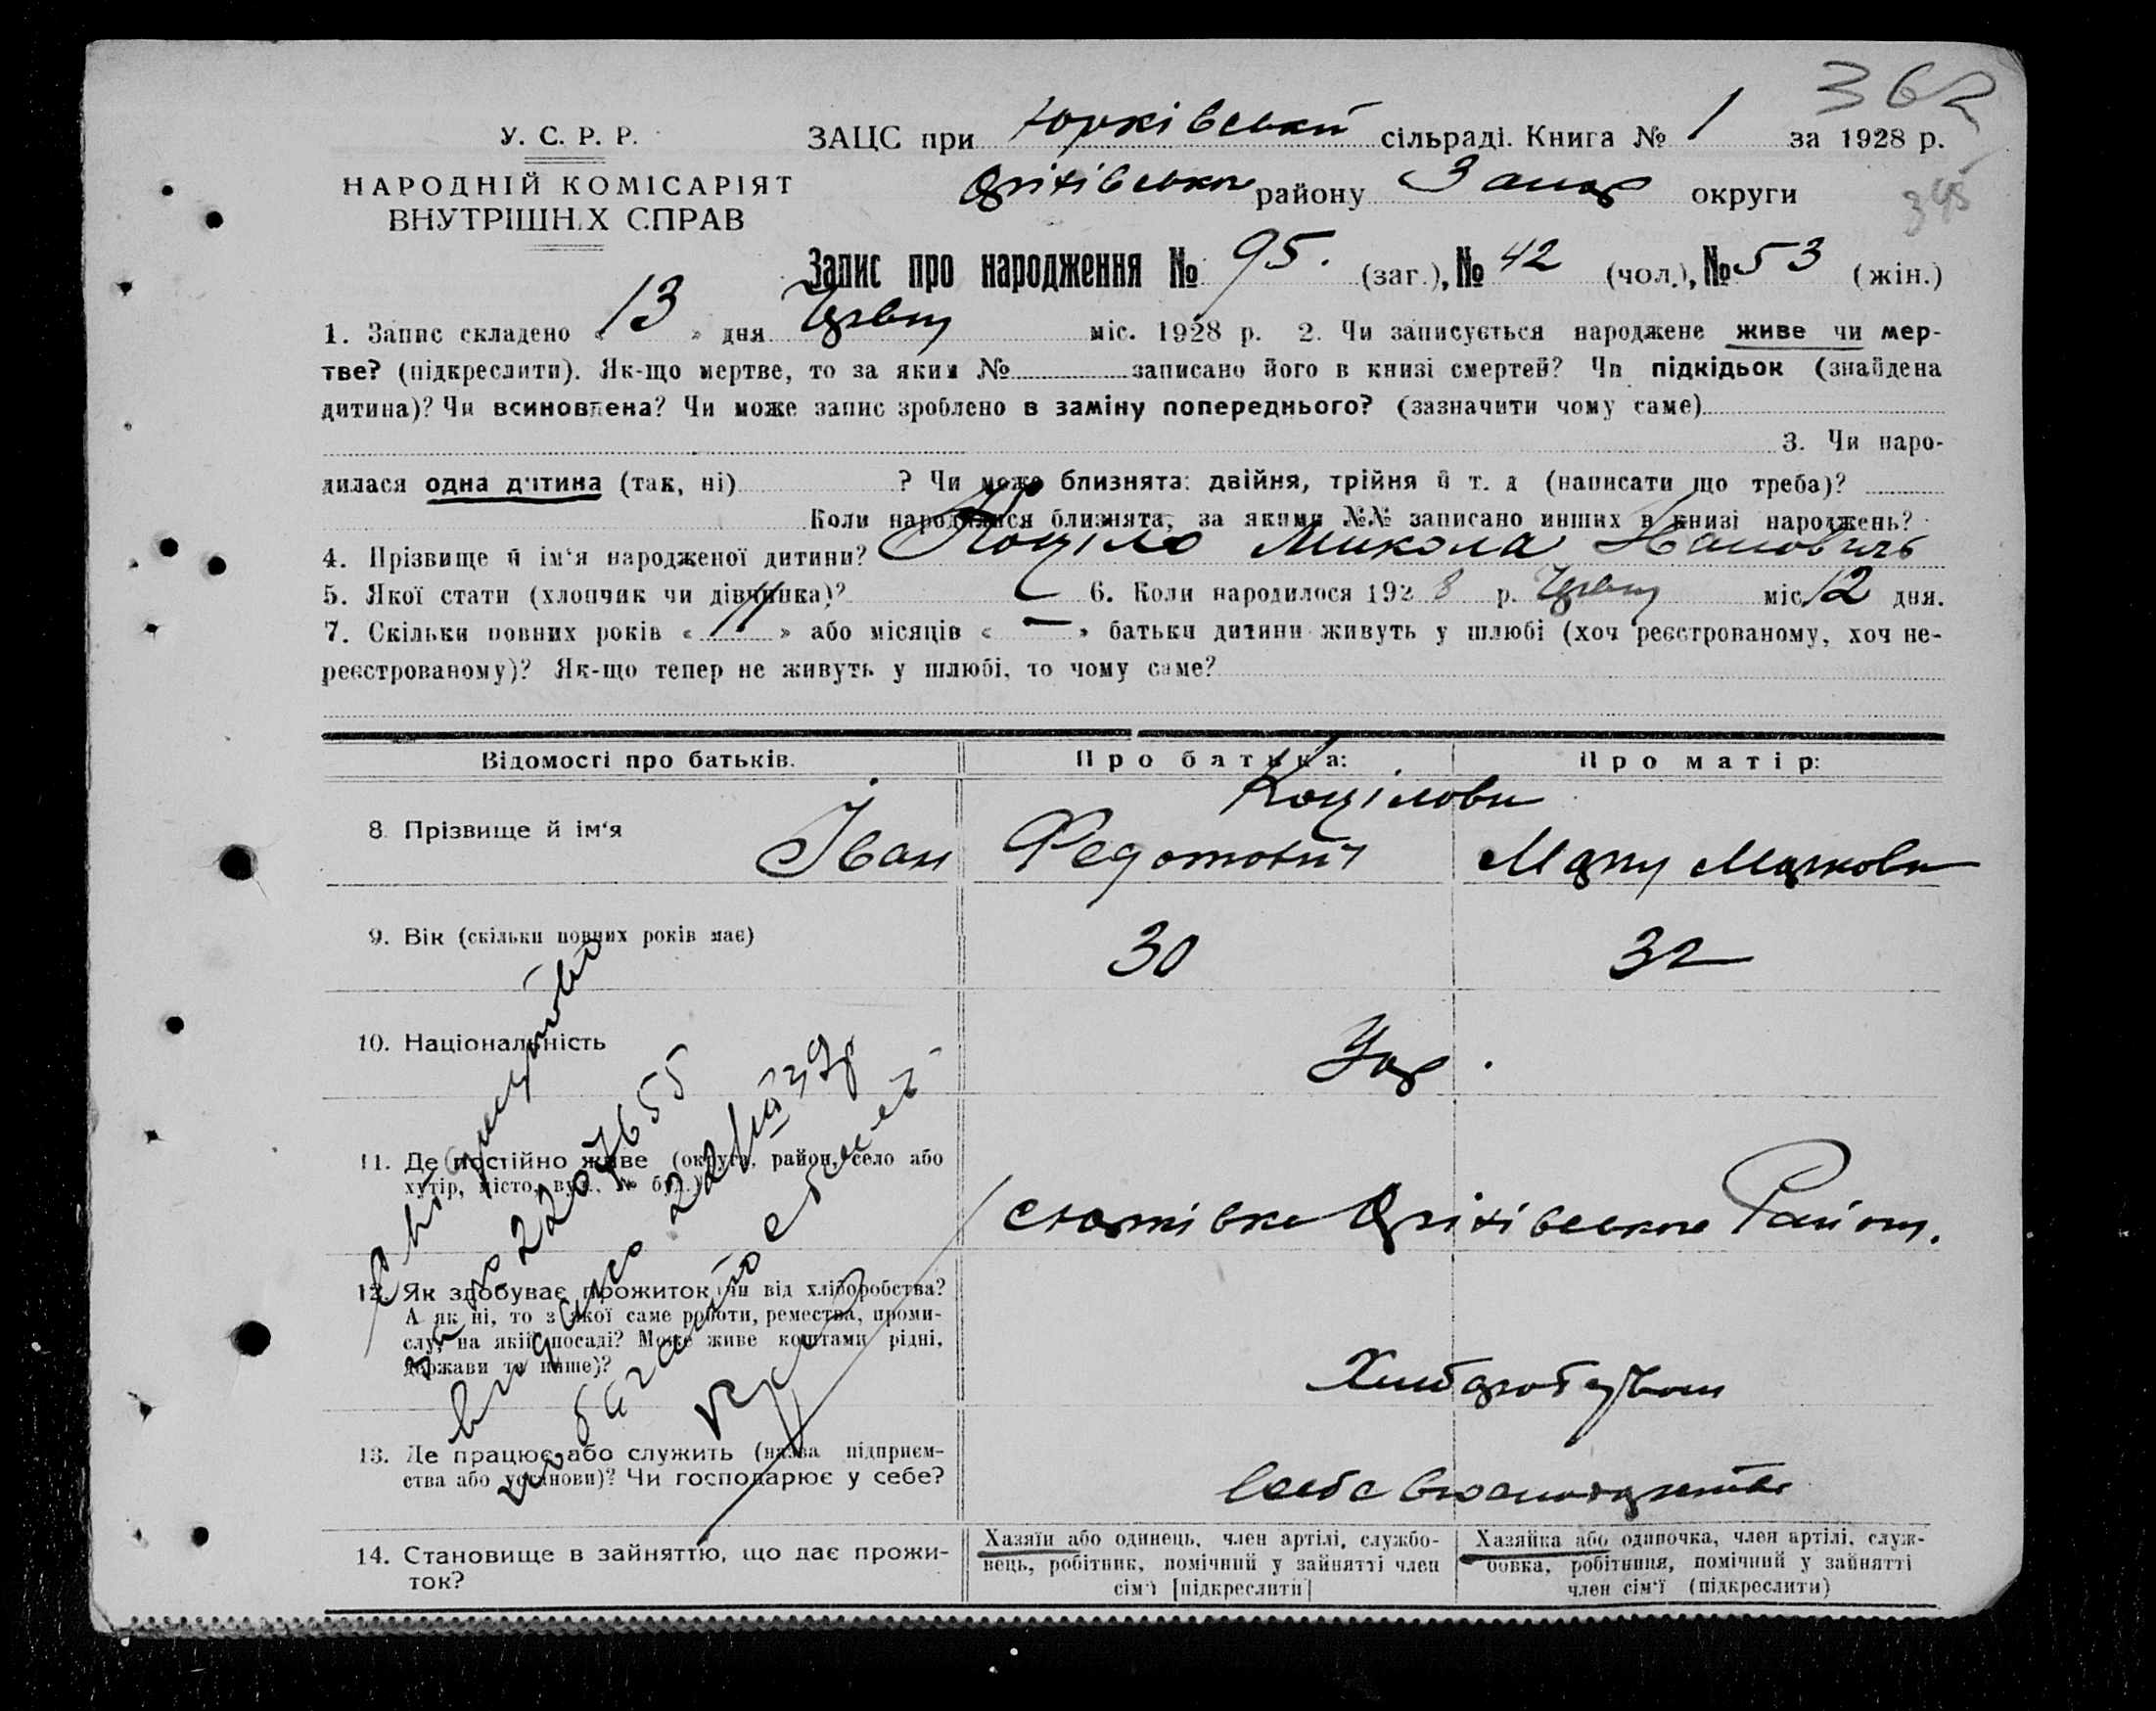 362
У. С. Р. Р. ЗАЦС при Юрківській сільраді. Книга № 1 за 1928 р.
НАРОДНІЙ КОМІСАРІЯТ Оріхівського району Запор округи
ВНУТРІШНіХ СПРАВ 345
Запис про народження № 95. (заг.), № 42 (чол.), № 53 (жін.)
1. Запис складено « 13 » дня Червн міс. 1928 р. 2. Чи записується народжене живе чи мер-
тве? (підкреслити). Як-що мертве, то за яким № записано його в книзі смертей? Чи підкідьок (знайдена
дитина)? Чи всиновлена? Чи може запис зроблено в заміну попереднього? (зазначити чому саме)
3. Чи наро-
дилася одна дитина (так, ні) ? Чи може близнята: двійня, трійня й т. д (написати що треба)?
Коли народилися близнята, за якими №№ записано инших в книзі народжень?
4. Прізвище й ім‘я народженої дитини? Коціло Микола Іванович
5. Якої стати (хлопчик чи дівчинка)? 6. Коли народилося 1928 р. Червн міс. 12 дня.
7. Скільки повних років « 11 » або місяців « — » батьки дитини живуть у шлюбі (хоч реєстрованому, хоч не-
реєстрованому)? Як-що тепер не живуть у шлюбі, то чому саме?
Відомості про батьків. Про батька: Про матір:
Коцілови
8. Прізвище й ім‘я Іван Федотович Марку Маркови
9. Вік (скільки повних років має) 30 32
10. Національність Укр.
11. Де постійно живе (округа, район, село або
хутір, місто, вул., № буд.) Оріхівського Району.
12. Як здобуває прожиток: чи від хліборобства?
А як ні, то з якої саме роботи, ремества, проми-
слу, на якій посаді? Може живе коштами рідні,
держави та инше)?
Хліборобством
13. Де працює або служить (назва підприєм-
ства або установи)? Чи господарює у себе? в себе в господарстві
14. Становище в зайняттю, що дає прожи-
ток?
Хазяїн або одинець, член артілі, службо-
вець, робітник, помічний у зайнятті член
сім‘ї [підкреслити]
Хазяйка або одиночка, член артілі, служ-
бовка, робітниця, помічний у зайнятті
член сім‘ї (підкреслити)
2207655